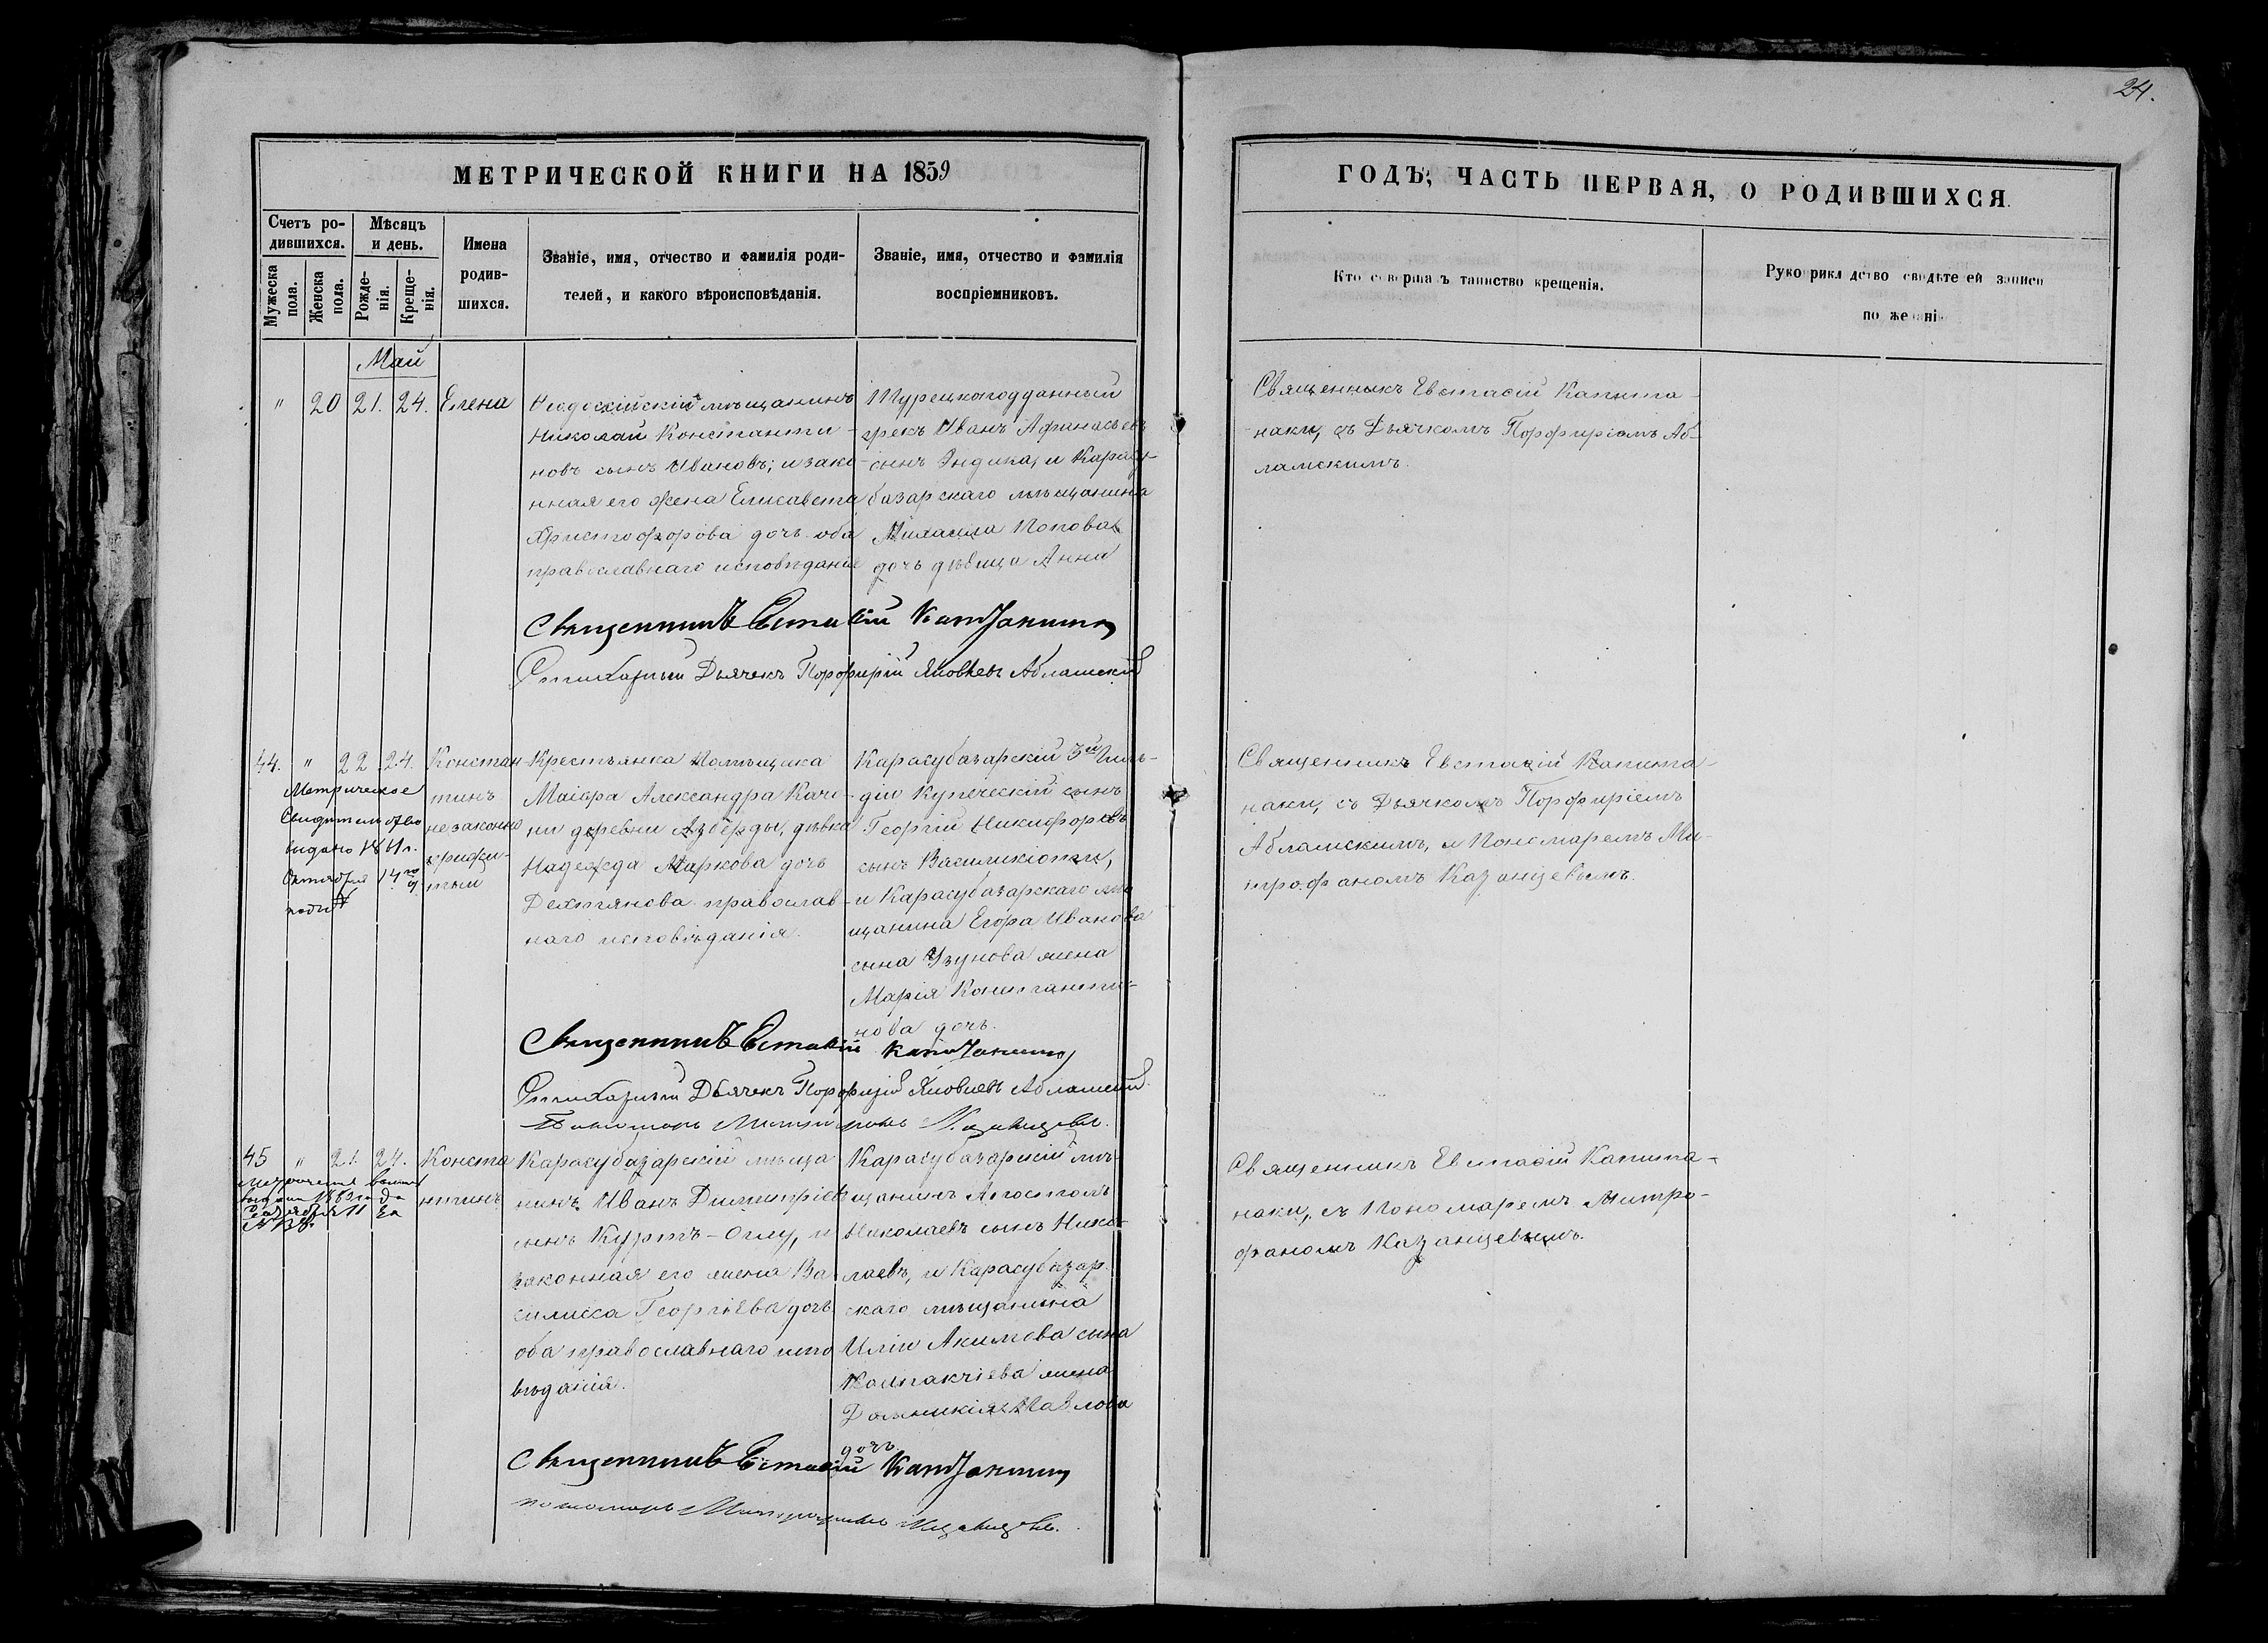 24.
МЕТРИЧЕСКОЙ КНИГИ НА 1859
ГОДЪ, ЧАСТЬ ПЕРВАЯ, О РОДИВШИХСЯ.
Счетъ ро-
дившихся.
Мужеска
пола.
Женска
пола.
Мѣсяцъ
и день.
Рожде-
нія.
Креще-
нія.
Имена
родив-
шихся.
Званіе, имя, отчество и фамилія роди-
телей, и какого вѣроисповѣданія.
Званіе, имя, отчество и фамилія
воспріемниковъ.
Кто совершалъ таинство крещенія.
Рукоприкладство свидѣтелей записи
по желанію
Май
" 20 21. 24. Елена
Ѳеодосійскій мѣщанинъ
Николай Константи-
новъ сынъ Ивановъ; и зако-
нная его жена Елисавета
Христофорова дочь оба
православнаго исповѣданія
Турецкоподданный
грекъ Иванъ Афанасьевъ
сынъ Эндика, и Карасу-
базарскаго мѣщанина
Михаила Попова
дочь дѣвица Анна
Священникъ Евстафій Капита-
наки, съ Дьячкомъ Порфиріемъ Аб-
ламскимъ.
Священникъ Евстафій Капитанаки
Дьячекъ Порфирій Яковлевъ Абламскій
44. " 22 24. Констан-
тинъ
незаконно
прижи-
тый
Метрическое
Свидѣтельство
выдано
Октября 14го
Крестьянка Помѣщика
Маіора Александра Качі-
ни деревни Азберды, дѣвка
Надежда Маркова дочь
православ-
наго исповѣданія.
Карасубазарскій 3й Гиль-
діи Купеческій сынъ
Георгій Никифоровъ
сынъ Василикіоти,
и Карасубазарскаго мѣ-
щанина Егора Иванова
сына Узунова жена
Марія Константи-
нова дочь.
Священникъ Евстафій Капита-
наки, съ Дьячкомъ Порфиріемъ
Абламскимъ, и Пономаремъ Ми-
трофаномъ Казанцевымъ.
Священникъ Евстафій Капитанаки
Дьячекъ Порфирій Яковлевъ Абламскій
Пономарь Митрофанъ Казанцевъ.
45 " 21. 24. Конста
нтинъ
Карасубазарскій мѣща
нинъ Иванъ Димитріевъ
сынъ Куртъ-Оглу, и
законная его жена Ва-
силисса Георгіева дочь
оба православнаго испо
вѣданія.
Карасубазарскій мѣ-
щанинъ Апостолъ
Николаевъ сынъ Нико-
лаевъ, и Карасубазар-
скаго мѣщанина
Иліи Акимова сына
Колпакчіева жена
Домникія Павлова
дочь
Священникъ Евстафій Капита-
наки, съ Пономаремъ Митро-
фаномъ Казанцевымъ.
Священникъ Евстафій Капитанаки
пономарь Митрофанъ Казанцевъ.